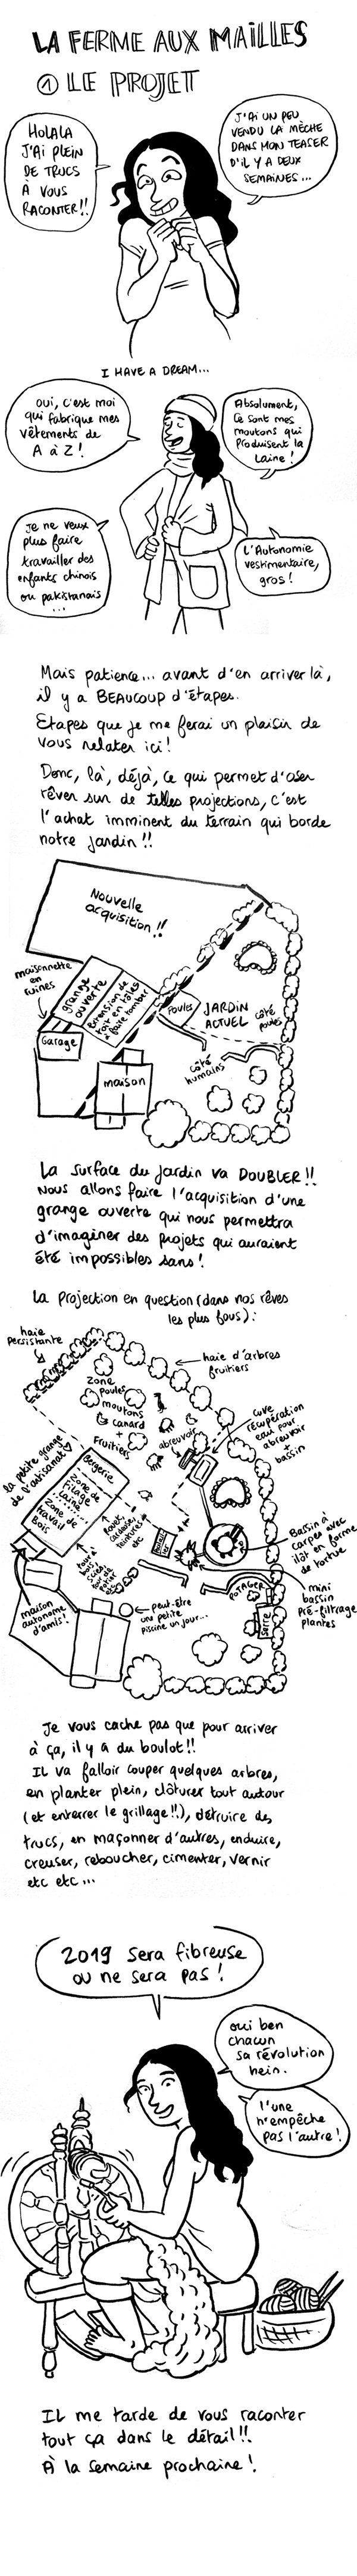 LA FERME AUX MAILLES
① LE PROJET
HOLALA
J'AI PLEIN
DE TRUCS
À VOUS
RACONTER!!
J'AI UN PEU
VENDU LA MÈCHE
DANS MON TEASER
D'IL Y A DEUX
SEMAINES...
I HAVE A DREAM...
Oui, c'est moi
qui fabrique mes
vêtements de
A à Z!
Absolument,
Ce sont mes
moutons qui
produisent la
laine!
Je ne veux
plus faire
travailler des
enfants chinois
ou pakistanais
...
L'Autonomie
vestimentaire,
gros!
Mais patience... avant d'en arriver là,
il y a BEAUCOUP d'étapes.
Etapes que je me ferai un plaisir de
vous relater ici!
Donc, là, déjà, ce qui permet d'oser
rêver sur de telles projections, c'est
l'achat imminent du terrain qui borde
notre jardin!!
Nouvelle
acquisition!!
maisonnette
en
ruines
grange
ouverte
Extension de
toit en tôles
à faire tomber
Garage
Poules
JARDIN
ACTUEL
côté
poules
côté
humains
maison
La surface du jardin va DOUBLER!!
Nous allons faire l'acquisition d'une
grange ouverte qui nous permettra
d'imaginer des projets qui auraient
été impossibles sans!
La projection en question (dans nos rêves
les plus fous):
haie
persistante
haie d'arbres
fruitiers
zone
poules
moutons
canard
+
Fruitiers
abreuvoir
cuve
récupération
eau pour
abreuvoir
+
bassin
la petite grange
de l'artisanat
Bergerie
Zone de
Filage
Zone de
travail
Bois
Bassin à
carpes avec
îlot en forme
de tortue
mini
bassin
pré-filtrage
plantes
POTAGER
serre
maison
autonome
d'amis!
peut-être
une petite
piscine un jour...
Je vous cache pas que pour arriver
à ça, il y a du boulot!!
Il va falloir couper quelques arbres,
en planter plein, clôturer tout autour
(et enterrer le grillage!!), détruire des
trucs, en maçonner d'autres, enduire,
creuser, reboucher, cimenter, vernir
etc etc...
2019 sera fibreuse
ou ne sera pas!
oui ben
chacun
sa révolution
hein.
l'une
n'empêche
pas l'autre!
Il me tarde de vous raconter
tout ça dans le détail!!
À la semaine prochaine!